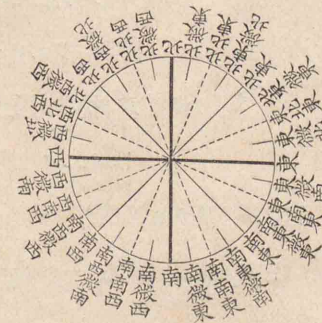 北
北微東
北北東
北東微北
北東
北東微東
東北東
東微北
東
東微南
東南東
南東微東
南東
南東微南
南南東
南微東
南
南微西
南南西
南西微南
南西
南西微西
西南西
西微南
西
西微北
西北西
北西微西
北西
北西微北
北北西
北微西